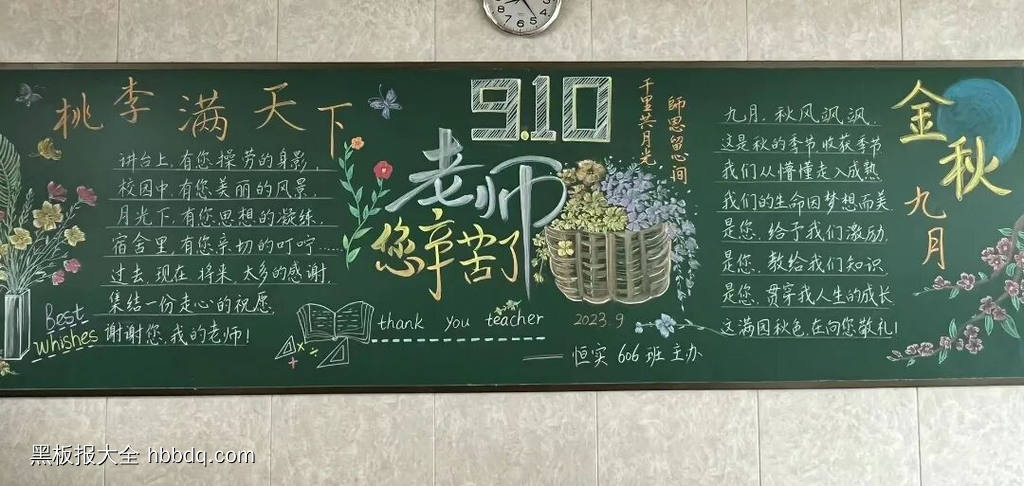 桃李满天下
讲台上,有您操劳的身影,
校园中,有您美丽的风景,
月光下,有您思想的凝练,
宿舍里,有您亲切的叮咛……
过去,现在,将来,太多的感谢,
集结一份走心的祝愿,
谢谢您,我的老师!
Best
Whishes
9.10
老师
您辛苦了
thank you teacher
2023.9
——恒实 606 班 主办
千里共月光
師恩留心间
九月,秋风飒飒,
这是秋的季节收获季节
我们从懵懂走入成熟
我们的生命因梦想而美
是您,给予我们激励,
是您,教给我们知识
是您,贯穿我人生的成长
这满园秋色,在向您敬礼!
金秋
九月
黑板报大全 hbbdq.com